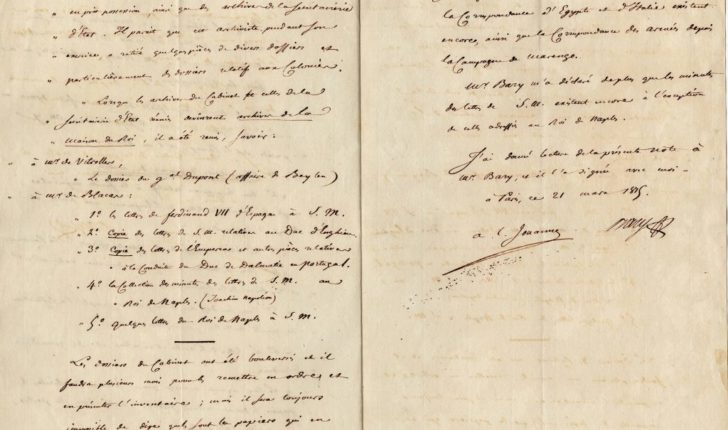 " en pris possession, ainsi que des archives de la Secrétairerie
" d'Etat. Il parait que cet archiviste pendant son
" exercice, a retiré quelques pièces de divers dossiers et
" particulièrement des dossiers relatifs aux Colonies.
" Lorsque les archives du Cabinet et celles de la
" Secrétairie d'Etat réunis devinrent archives de la
" Maison du Roi, il a été remis, Savoir:
" à Mr. de Vitrolles,
" Le dossier du gal Dupont (affaire de Baylen)
" à Mr. de Blacas:
" 1o. les lettres de ferdinand VII d'Espagne à S. M.
" 2o. Copie des lettres de S. M. relatives au Duc d'Enghien.
" 3o. Copie des lettres de l'Empereur et autres pièces relatives
" à la Conduite du Duc de Dalmatie en Portugal.
" 4o. la Collection des minutes des lettres de S. M. au
" Roi de Naples. (Joachim Napoléon)
" 5o. quelques lettres du Roi de Naples à S. M.
Les dossiers du Cabinet ont été bouleversés et il
faudra plusieurs mois pour les remettre en ordre et
en présenter l'inventaire; mais il sera toujours
impossible de dire quels sont les papiers qui en
la Correspondance d'Egypte et d'Italie existent
encore, ainsi que la Correspondance des armées depuis
la Campagne de Marengo.
Mr. Bary m'a déclaré de plus que les minutes
des lettres de S. M. existent encore à l'exception
de celles adressées au Roi de Naples.
J'ai donné lecture de la présente note à
Mr. Bary, et il l'a signée avec moi
à Paris, ce 21 mars 1815
a. l. Jouanne Bary